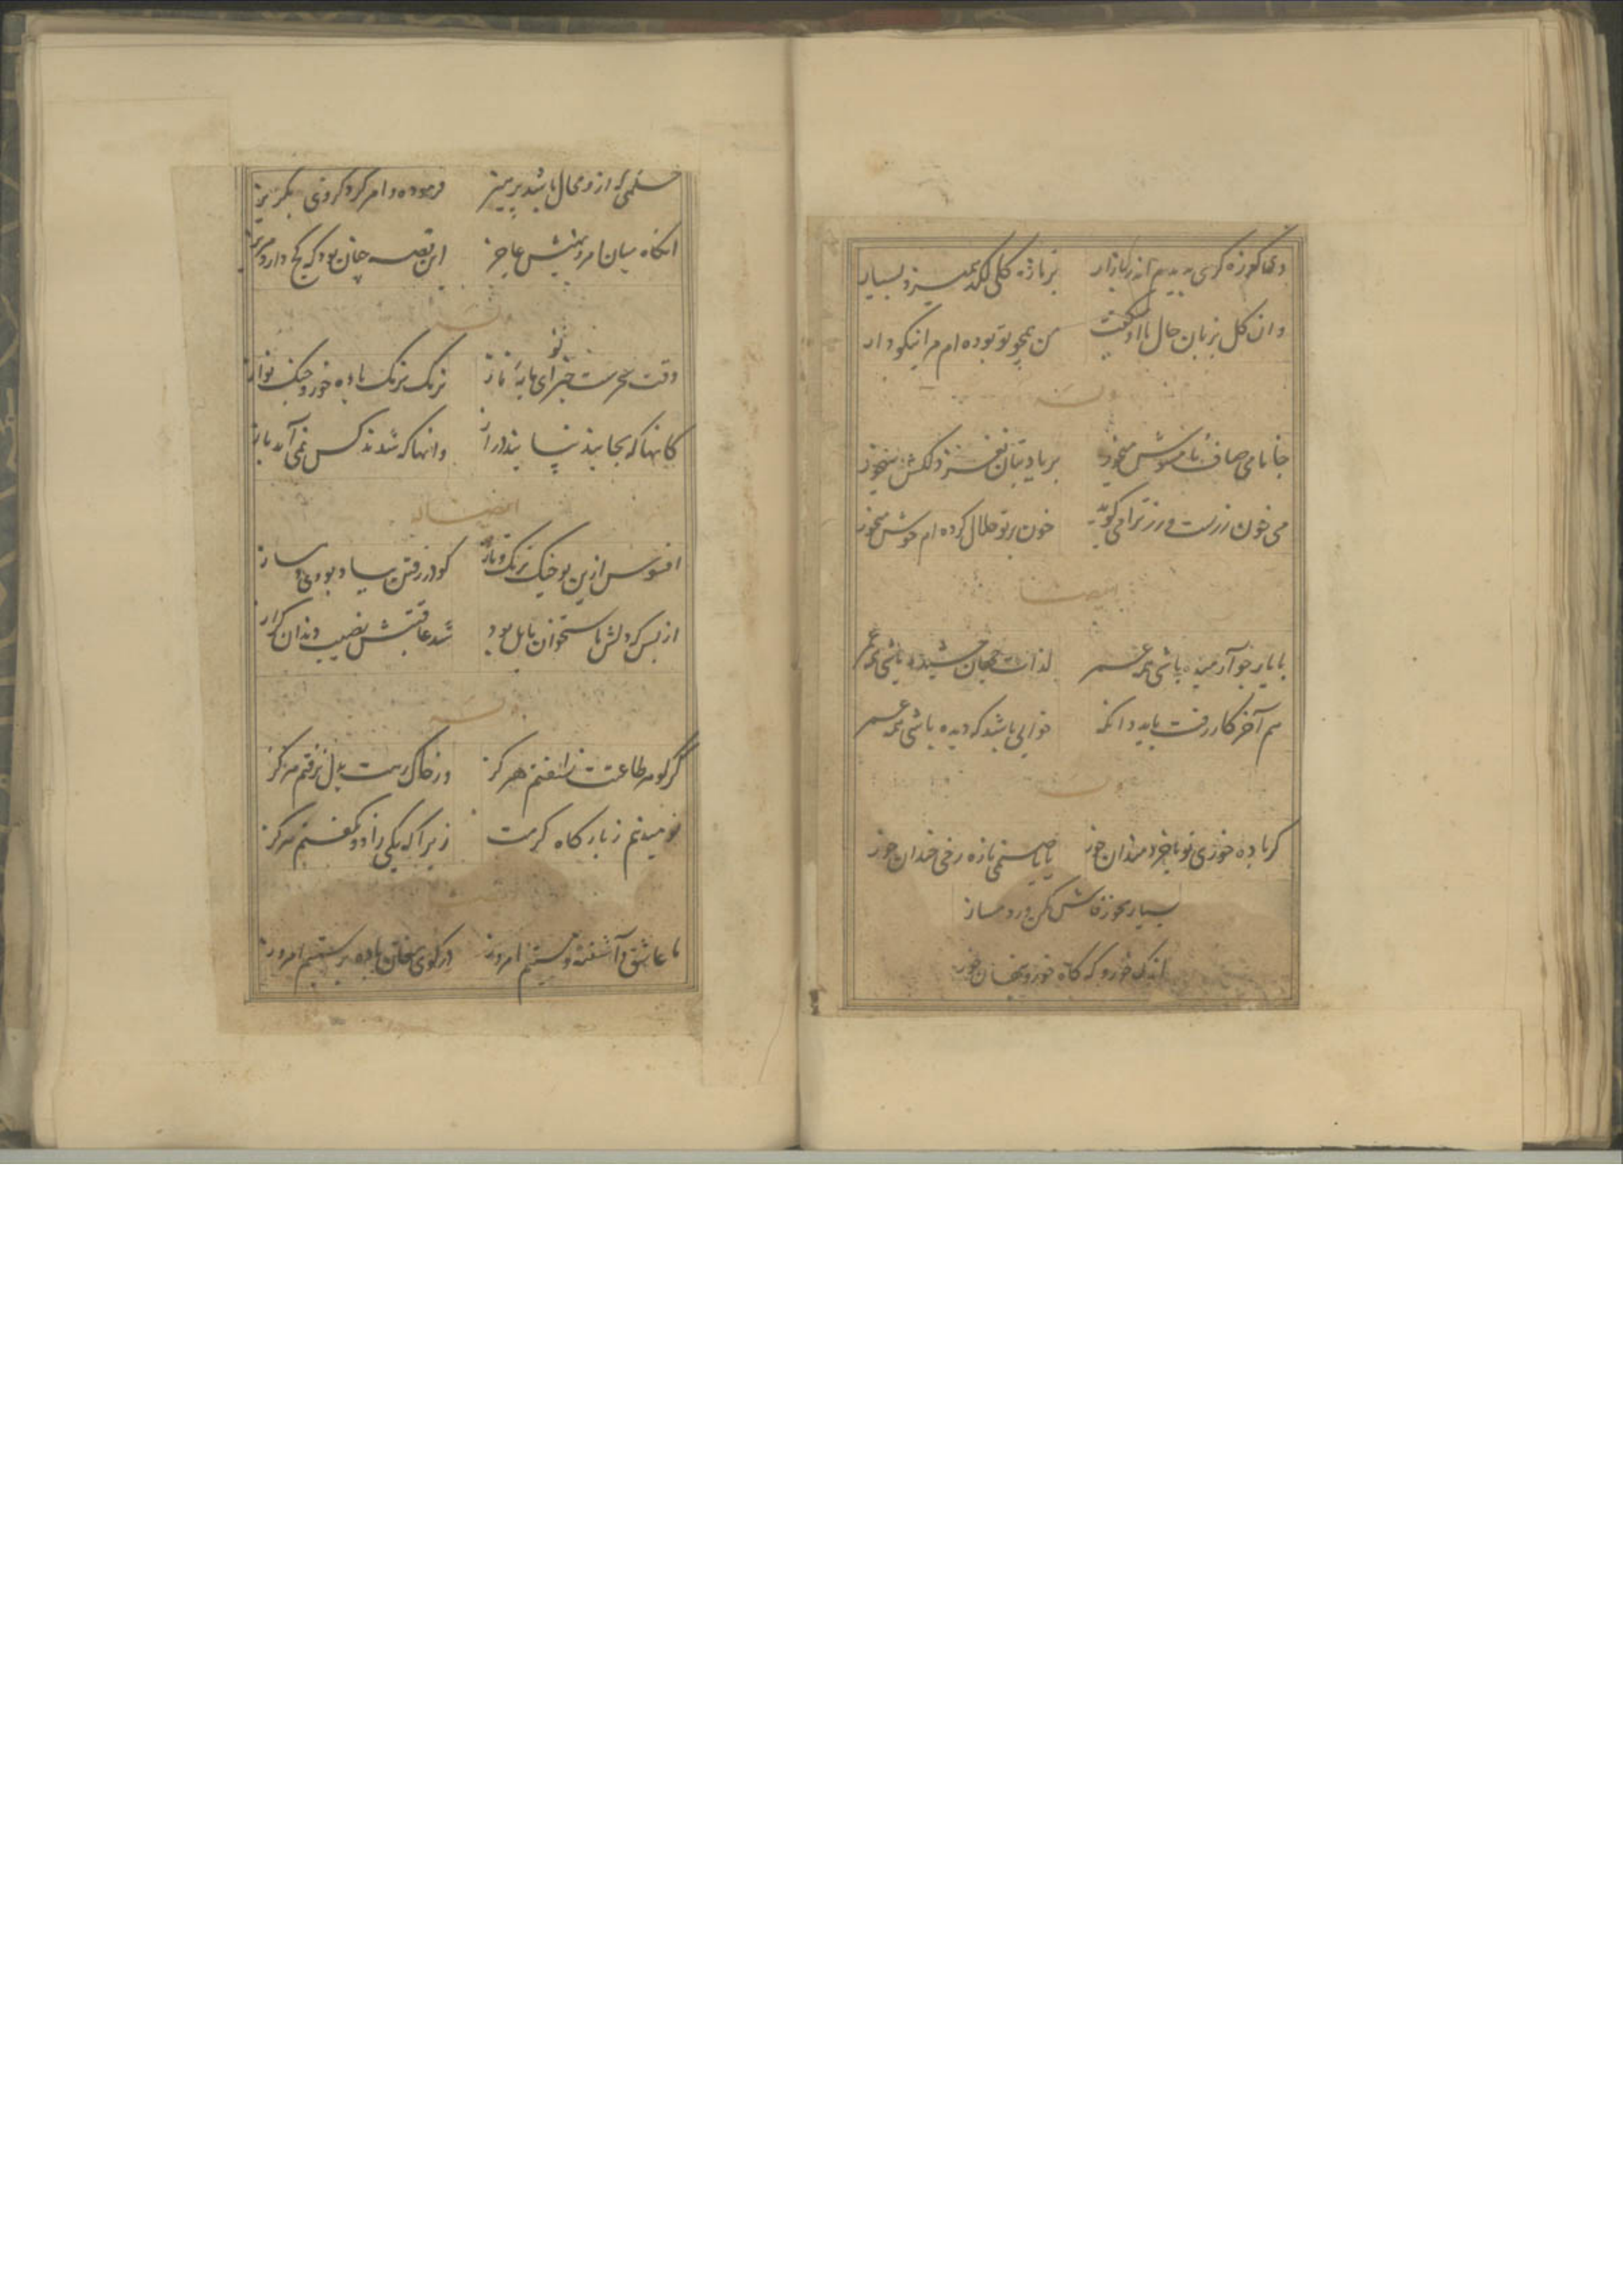 دی کوزه گری بدیدم اندر بازار بر تازه گلی لگد همیزد بسیار
وان گل بزبان حال با او میگفت من همچو تو بوده ام مرا نیکو دار
وله
جانا می صاف نامشوش میخور بر یاد بتان نغز دلکش میخور
می خون رزست و رز ترا میگوید خون بر تو حلال کرده ام خوش میخور
ایضا
با یار چو آرمیده باشی همه عمر لذات جهان چشیده باشی همه عمر
هم آخر کار رفت باید وانگه خوابی باشد که دیده باشی همه عمر
وله
گر باده خوری تو با خردمندان خور یا با صنمی تازه رخی خندان خور
بسیار مخور فاش مکن ورد مساز
اندک خور و گه گاه خور و پنهان خور
حکمی که ازو محال باشد پرهیز فرموده و امر کرد کزوی بگریز
انگاه میان امر و نهیش عاجز این قصه چنان بود که کج دار و مریز
وله
وقت سحرست خیز ای مایه ناز نرمک نرمک باده خور و چنگ نواز
کانها که بجایند نپایند دراز وانها که شدند کس نمی آید باز
ایضا له
افسوس ازین
از بس که دلش با ستخوان مایل بود شد عاقبتش نصیب دندان گراز
وله
گر گوهر طاعتت نسفتم هرگز ور خاک رهت بدل نرفتم هرگز
نومید نیم ز بارگاه کرمت زیرا که یکی را دو نگفتم هرگز
ما عاشق و آشفته و مستیم امروز در کوی مغان باده پرستیم امروز